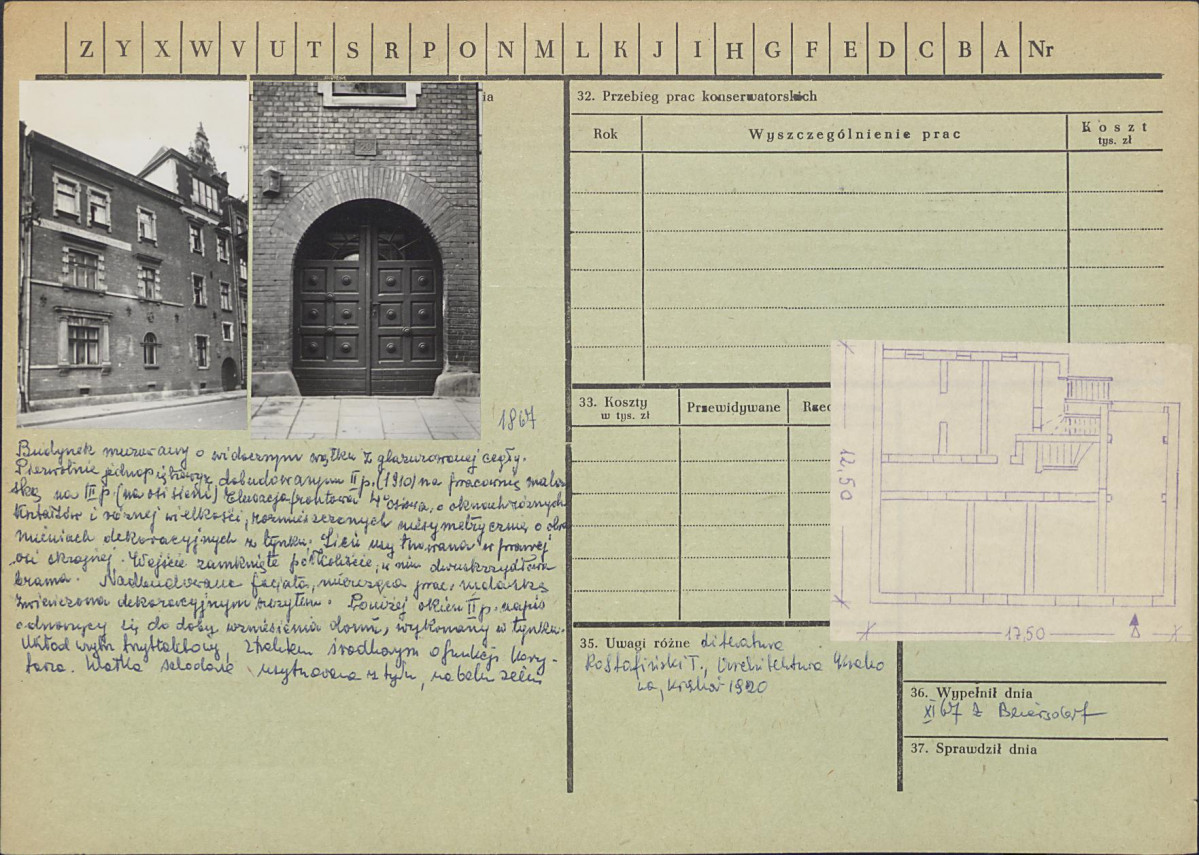 Z Y X W V U T S R P O N M L K J I H G F E D C B A Nr
ia
1967
Budynek murowany o widocznym wątku z glazurowanej cegły.
Pierwotnie jednopiętrowy, dobudowanym II p. (1910) na pracownię malar
ską na III p. (na osi sieni) Elewacja frontowa 4ro osiowa, o oknach różnych
kształtów i różnej wielkości, rozmieszczonych niesymetrycznie o obra
mieniach dekoracyjnych z tynku. Sień usytuowana w prawej
osi skrajnej. Wejście zamknięte półkoliście, w nim dwuskrzydłowa
brama. Nadbudowana facjata, mieszcząca prac. malarską
zwieńczona dekoracyjnym szczytem. Poniżej okien II p. napis
odnoszący się do doby wzniesienia domu, wykonany w tynku.
Układ wnętrz trzytraktowy, z traktem środkowym o funkcji kory-
tarza. Klatka schodowa usytuowana z tyłu, na belu sieni
32. Przebieg prac konserwatorskich
Rok Wyszczególnienie prac Koszt
tys. zł
33. Koszty
w tys. zł
Przewidywane Rzec
12,50
17,50
35. Uwagi różne literatura
Rostafiński T., Architektura Krako
wa, Kraków 1920
36. Wypełnił dnia
XI 67 Z Beiersdorf
37. Sprawdził dnia